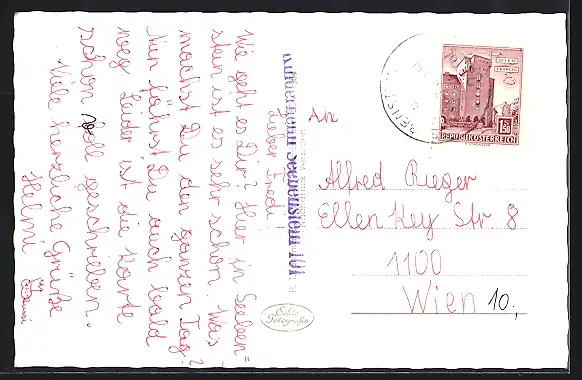 Lieber Fredi
Wie geht es Dir? Hier in Seeben"
stein ist es sehr schön. Was
machst Du den ganzen Tag?
Nun fährst Du auch bald
weg. Leider ist die Karte
schon voll geschrieben.
Viele herzliche Grüße
Helmi
Seebenstein 101
Echte
Fotografie
An
Alfred Rieger
Ellen Key Str 8
1100
Wien 10;
WIEN
1.50
REPUBLIK ÖSTERREICH